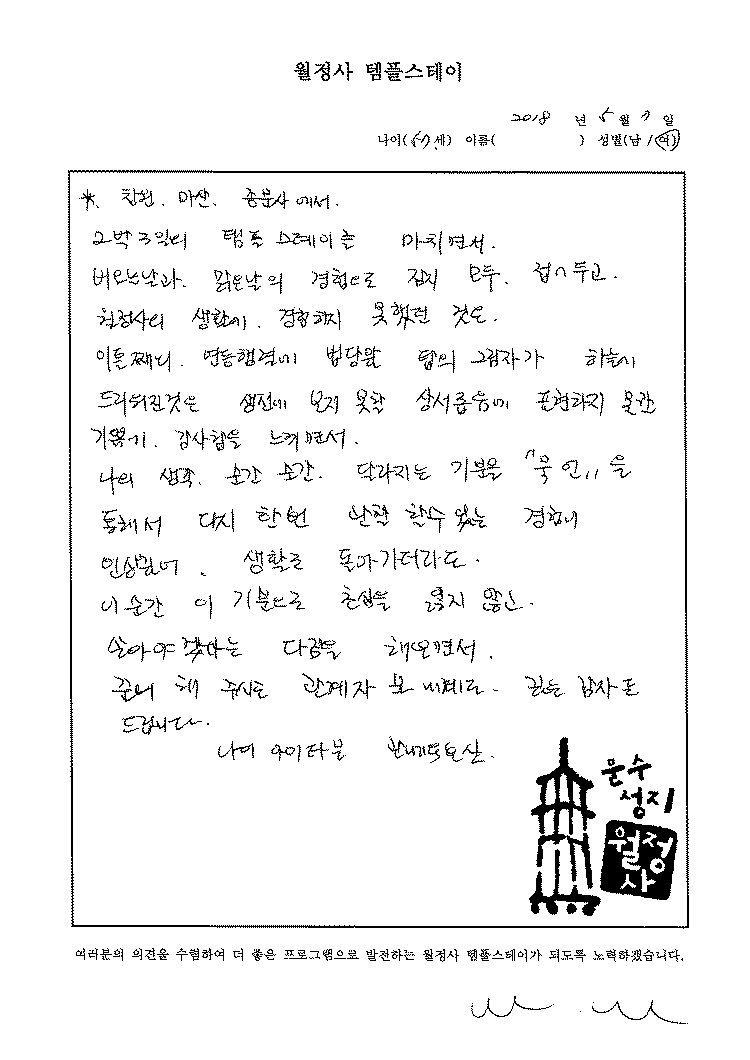 월정사 템플스테이
2018 년 5 월 7 일
나이( 세) 이름( ) 성별(남 / 여)
*. 창원. 마산. 에서.
2박 3일의 템플 스테이를 마치면서.
맑은날의 경험으로 모두. 접어 두고.
생활에. 경험하지 못했던 것은.
이튿째의. 연등행렬에 법당앞 탑의 그림자가 하늘에
드리워진것은 생전에 보지 못한 표현하지 못한
기쁨에. 감사함을 느끼면서.
나의 생각. 순간 순간. 달라지는 기분을 "묵언"을
통해서 다시 한번 할수 있는 경험이
생활로 돌아가더라도.
이 순간 이 기분으로 초심을 잃지 않는.
살아야 겠다는 다짐을 해보면서.
준비 해 주시는 관계자 분 깊은 감사를
드립니다.
문수
성지
월정
사
여러분의 의견을 수렴하여 더 좋은 프로그램으로 발전하는 월정사 템플스테이가 되도록 노력하겠습니다.